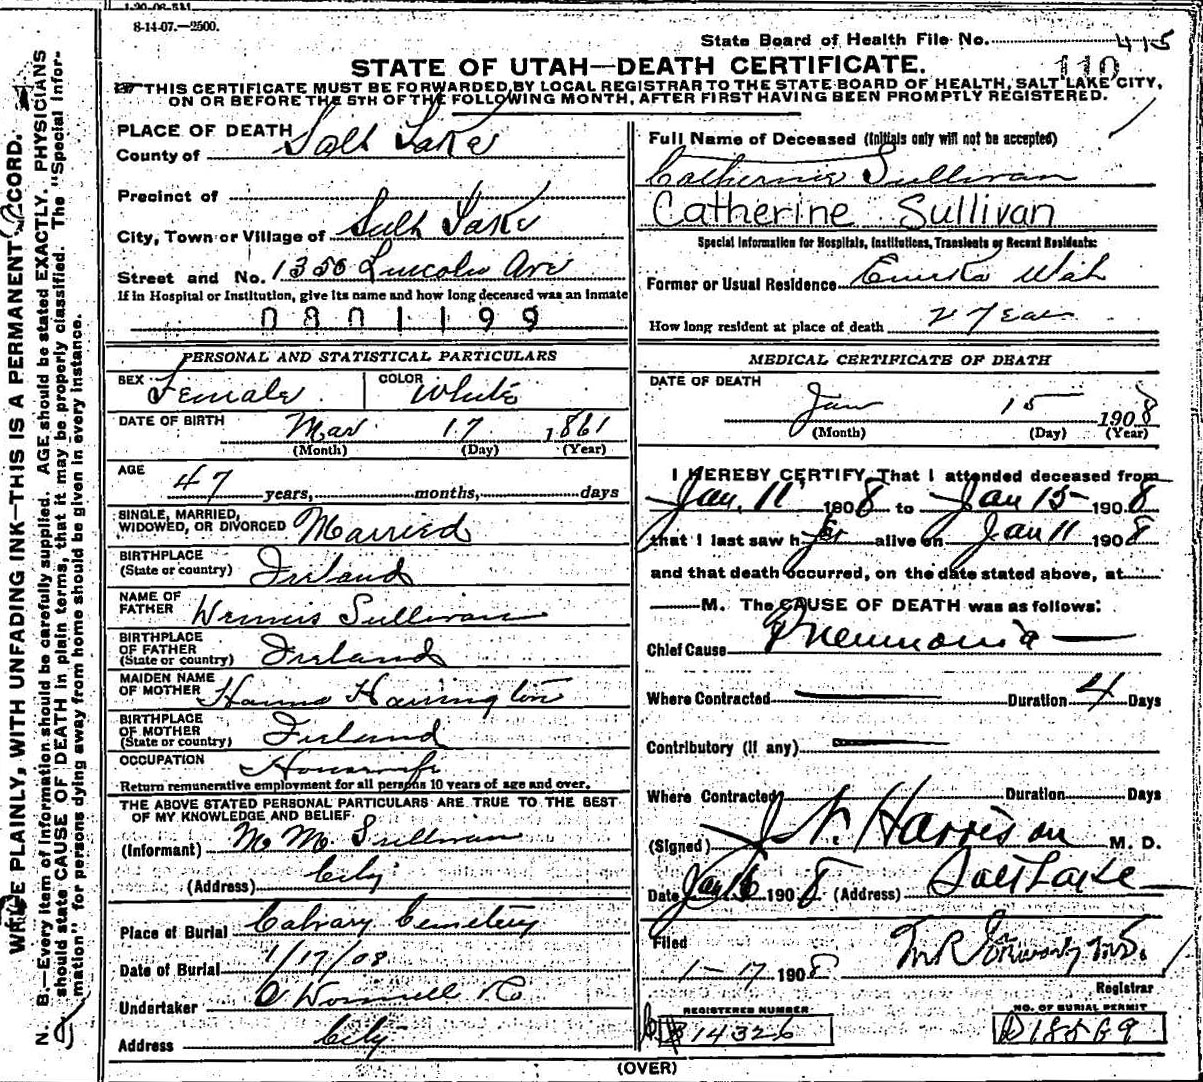 8-14-07.—2500.
State Board of Health File No. 415
110
STATE OF UTAH—DEATH CERTIFICATE.
THIS CERTIFICATE MUST BE FORWARDED BY LOCAL REGISTRAR TO THE STATE BOARD OF HEALTH, SALT LAKE CITY,
ON OR BEFORE THE 5TH OF THE FOLLOWING MONTH, AFTER FIRST HAVING BEEN PROMPTLY REGISTERED.
WRITE PLAINLY, WITH UNFADING INK—THIS IS A PERMANENT RECORD.
N. B.—Every item of information should be carefully supplied. AGE should be stated EXACTLY. PHYSICIANS
should state CAUSE OF DEATH in plain terms, that it may be properly classified. The "Special Infor-
mation" for persons dying away from home should be given in every instance.
PLACE OF DEATH
County of Salt Lake
Precinct of
City, Town or Village of Salt Lake
Street and No. 1356 Lincoln Ave
If in Hospital or Institution, give its name and how long deceased was an inmate
0801199
PERSONAL AND STATISTICAL PARTICULARS
SEX Female COLOR White
DATE OF BIRTH Mar 17 1861
(Month) (Day) (Year)
AGE 47 years, months, days
SINGLE, MARRIED,
WIDOWED, OR DIVORCED Married
BIRTHPLACE
(State or country) Ireland
NAME OF
FATHER Dennis Sullivan
BIRTHPLACE
OF FATHER
(State or country) Ireland
MAIDEN NAME
OF MOTHER Hanna Harrington
BIRTHPLACE
OF MOTHER
(State or country) Ireland
OCCUPATION Housewife
Return remunerative employment for all persons 10 years of age and over.
THE ABOVE STATED PERSONAL PARTICULARS ARE TRUE TO THE BEST
OF MY KNOWLEDGE AND BELIEF
(Informant) M M Sullivan
(Address) City
Place of Burial Calvary Cemetery
Date of Burial 1/17/08
Undertaker O Donnell & Co
Address City
Full Name of Deceased (Initials only will not be accepted)
Catherine Sullivan
Catherine Sullivan
Special Information for Hospitals, Institutions, Transients or Recent Residents:
Former or Usual Residence Eureka Utah
How long resident at place of death 2 Years
MEDICAL CERTIFICATE OF DEATH
DATE OF DEATH
Jan 15 1908
(Month) (Day) (Year)
I HEREBY CERTIFY, That I attended deceased from
Jan. 11 1908 to Jan 15 1908
that I last saw her alive on Jan 11 1908
and that death occurred, on the date stated above, at
M. The CAUSE OF DEATH was as follows:
Chief Cause Pneumonia
Where Contracted Duration 4 Days
Contributory (if any)
Where Contracted Duration Days
(Signed) Harrison M. D.
Date Jan 16 1908 (Address) Salt Lake
Filed
1-17 1908
Registrar
REGISTERED NUMBER
14326
NO. OF BURIAL PERMIT
D18569
(OVER)